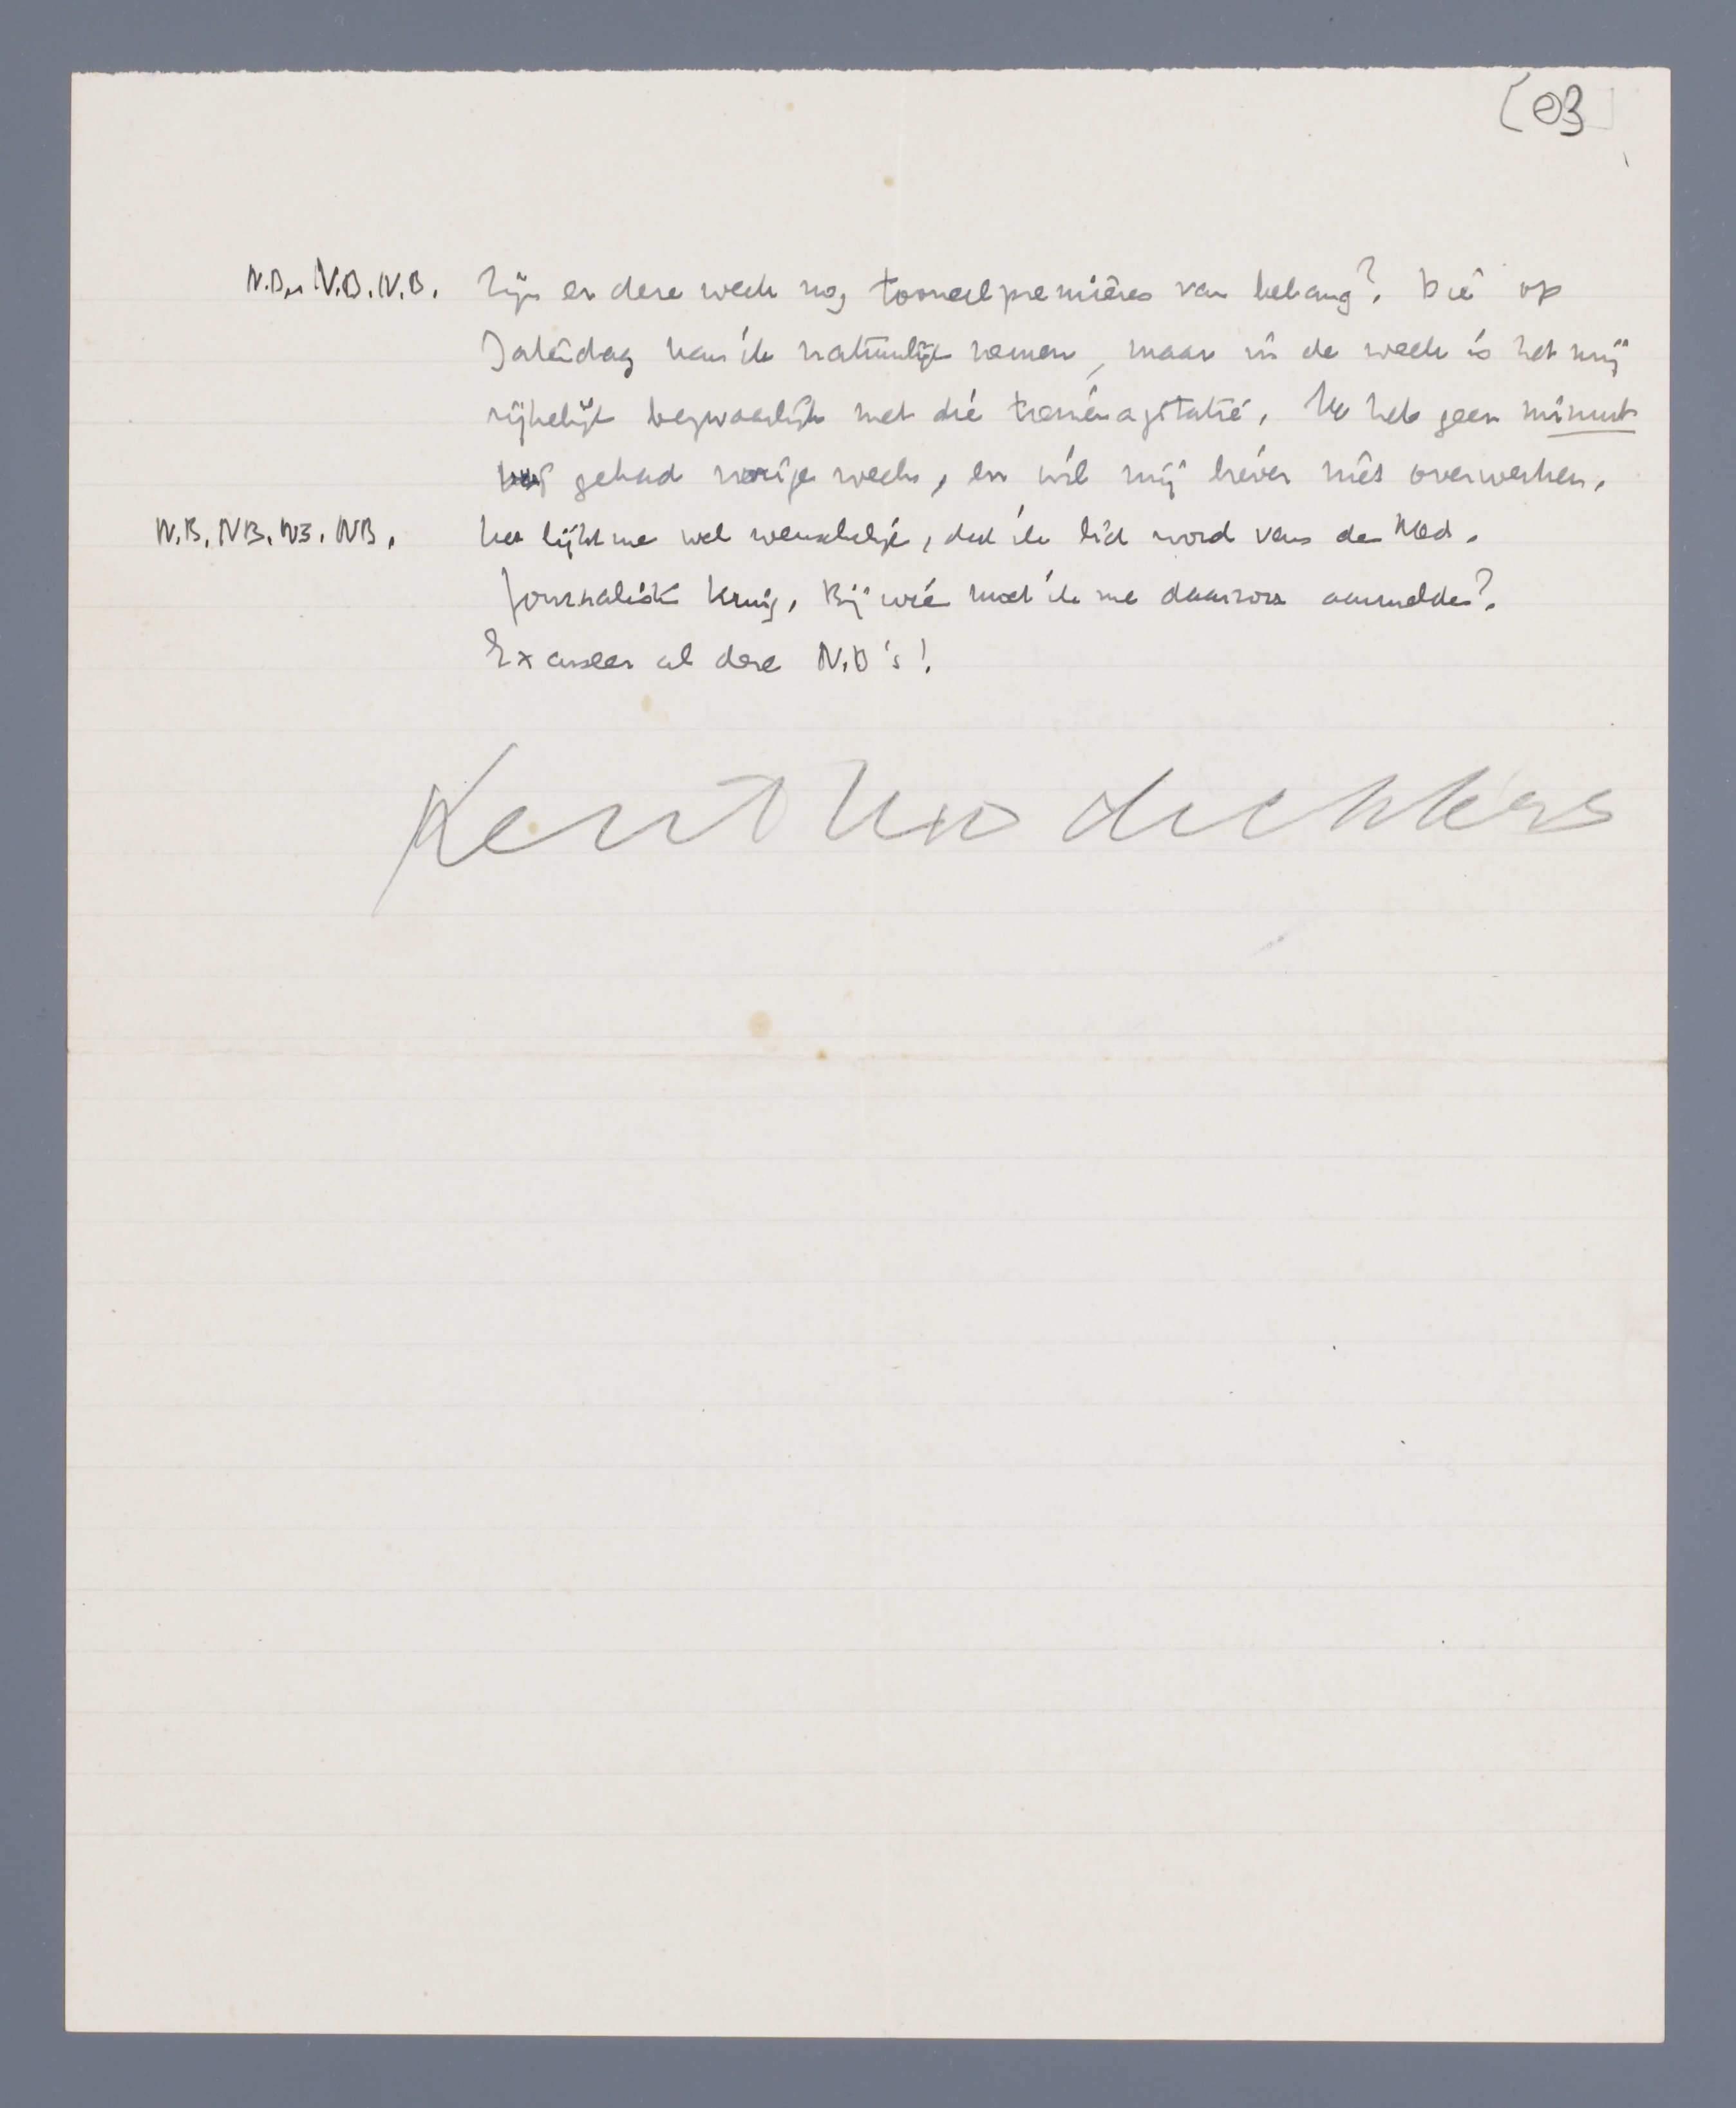 [03]
N.B., N.B. N.B. Zijn er deze week nog tooneelpremières van belang? Die op
Zaterdag kan ik natuurlijk nemen, maar in de week is het mij
rijkelijk bezwaarlijk met die treinenagitatie. Ik heb geen minuut
vrij gehad vorige week, en wil mij liever niet overwerken.
N.B. NB. NB. NB. Het lijkt me wel wenschelijk, dat ik lid word van de Ned.
Journalisten Kring. Bij wie moet ik me daarvoor aanmelden?
Excuseer al deze N.B's!